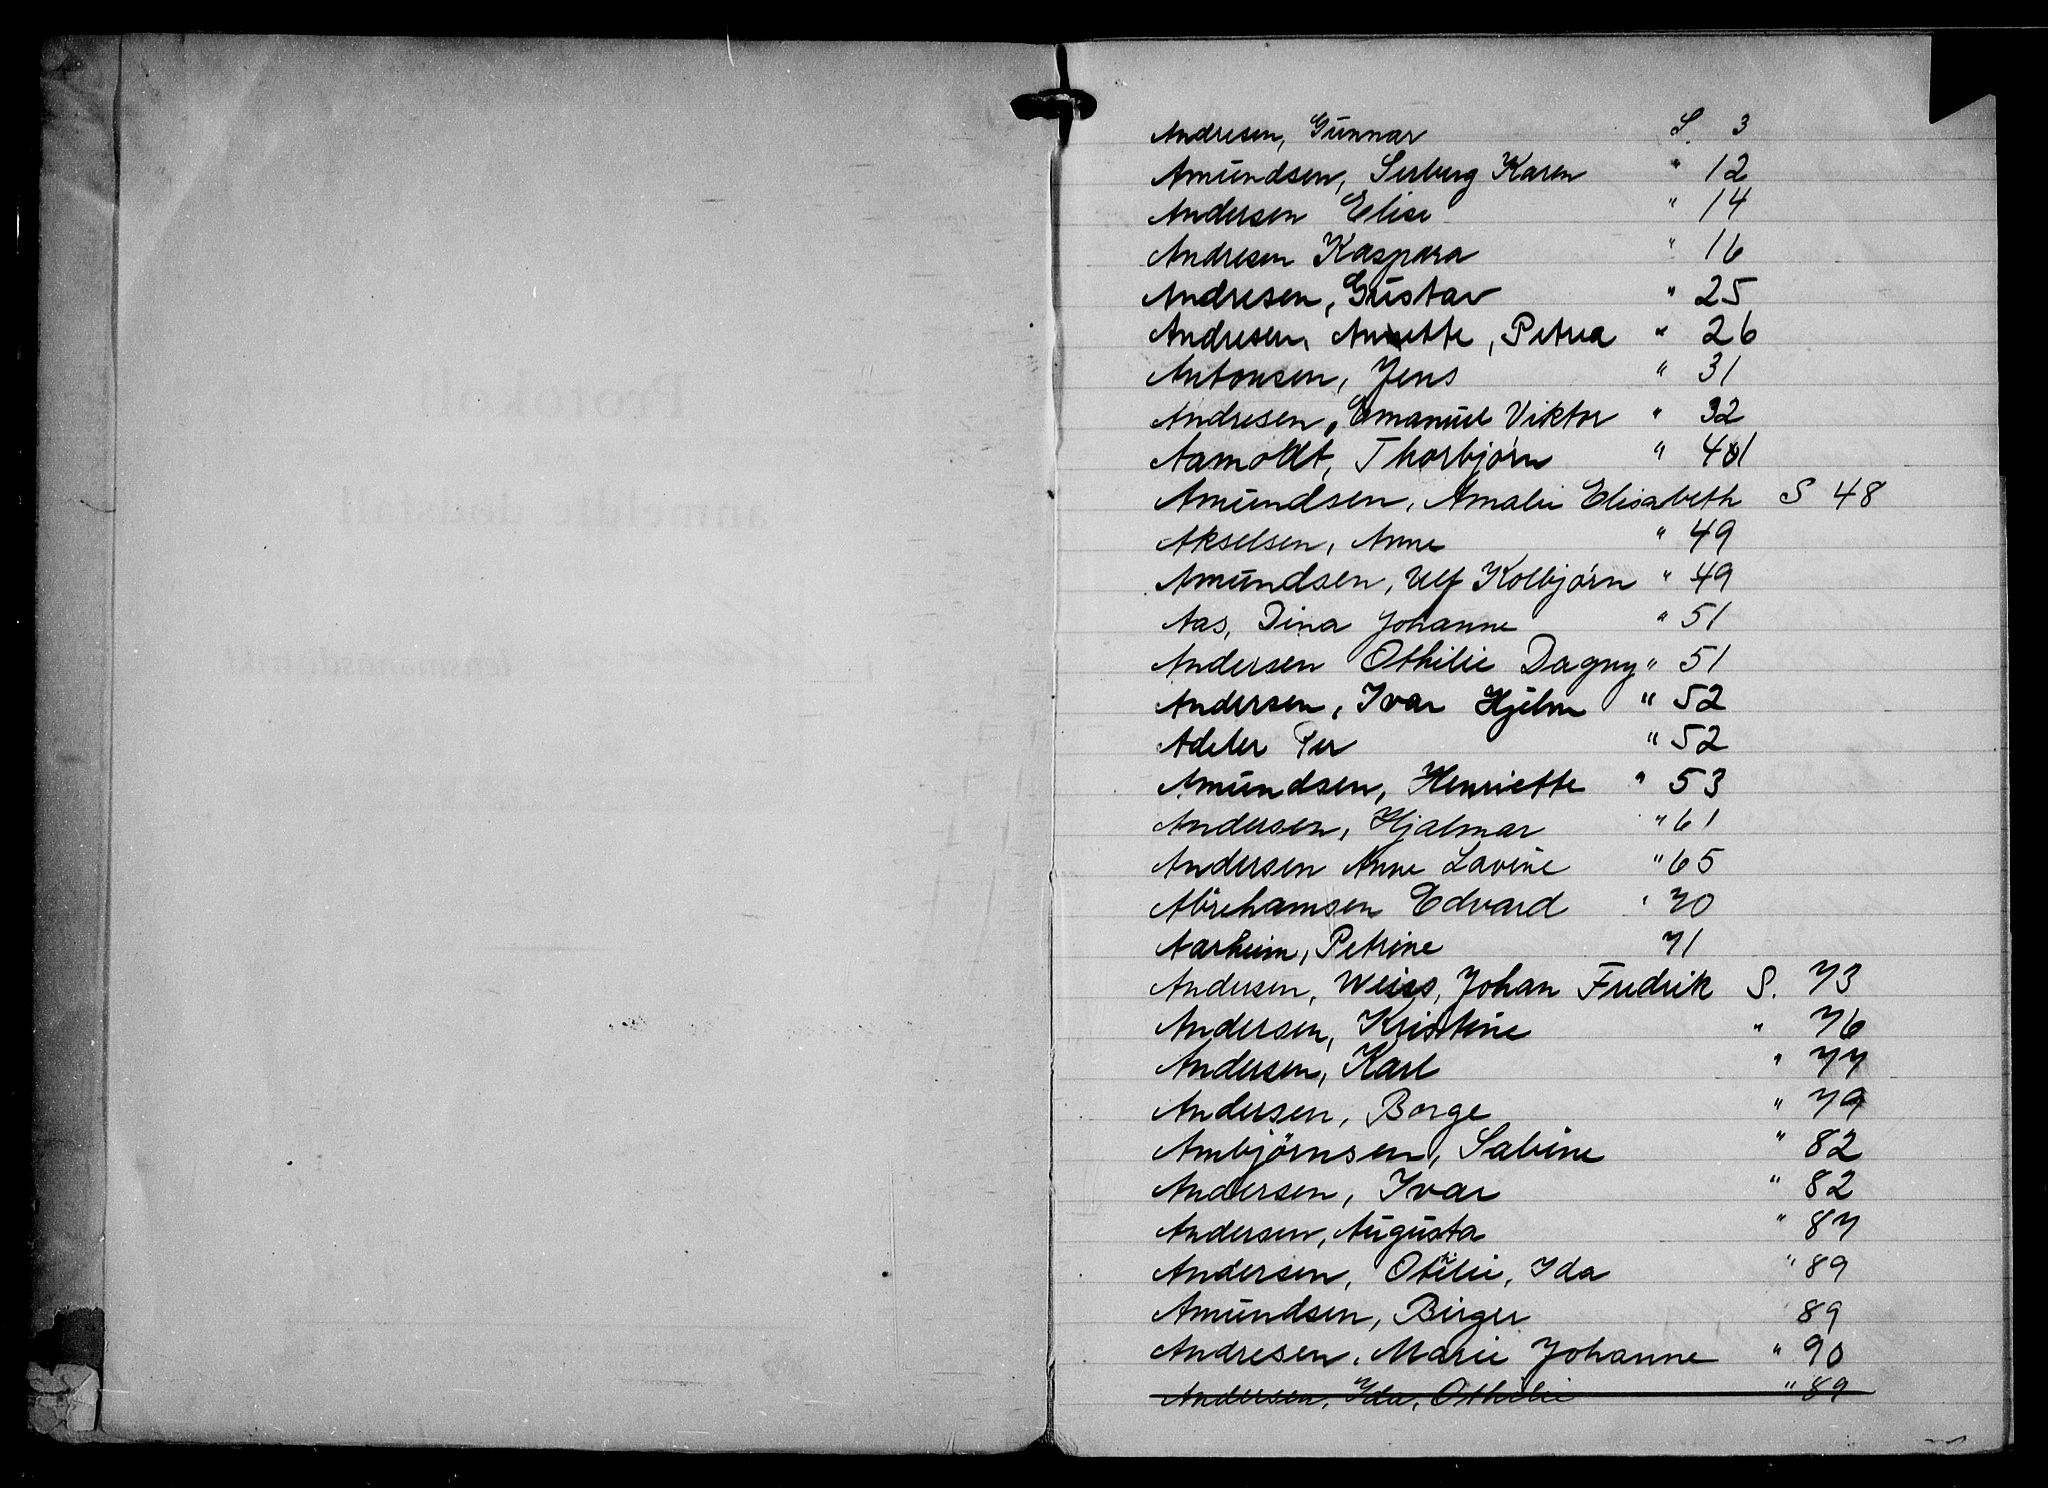 Andresen, Gunnar S. 3
Amundsen, Serberg Karen " 12
Andersen Elise " 14
Andresen Kaspara " 16
Andresen, Gustav " 25
Andresen, Annette, Petrea " 26
Antonsen, Jens " 31
Andresen, Emanuel Viktor " 32
Aamoldt, Thorbjørn " 41
Amundsen, Amalie Elisabeth S 48
Akselsen, Anne " 49
Amundsen, Ulf Kolbjørn " 49
Aas, Dina Johanne " 51
Andersen Othilie Dagny " 51
Andersen, Ivar Hjelm " 52
Adeler Per " 52
Amundsen, Henriette " 53
Andersen, Hjalmar " 61
Andersen Anne Lavine " 65
Abrehamsen Edvard " 70
Aarheim, Petrine 71
Andersen, Weiss, Johan Fredrik S. 73
Andersen, Kristine " 76
Andersen, Karl " 77
Andersen, Borge " 79
Ambjørnsen, Sabine " 82
Andersen, Ivar " 82
Andersen, Augusta " 87
Andersen, Othilie, Ida " 89
Amundsen, Birger 89
Andresen, Marie Johanne " 90
Andersen, Ida, Othilie " 89